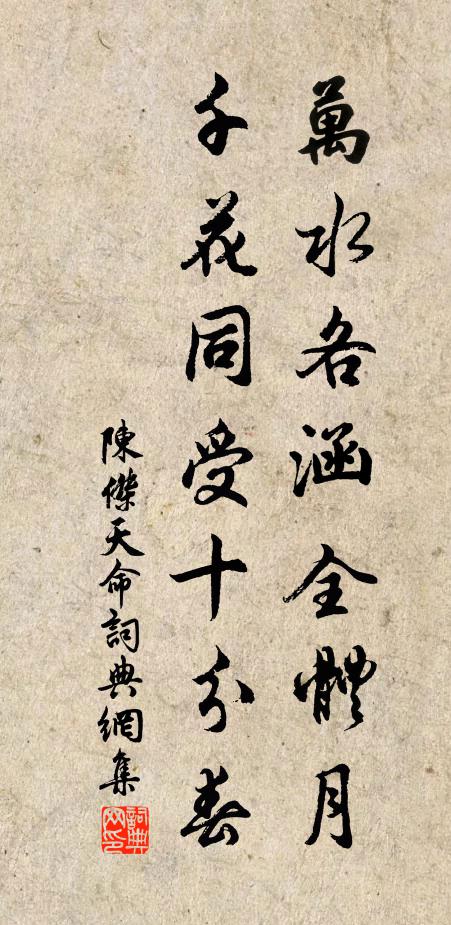 萬水各涵全體月
千花同受十分春
陳傑天命詞典網集
詞典網印